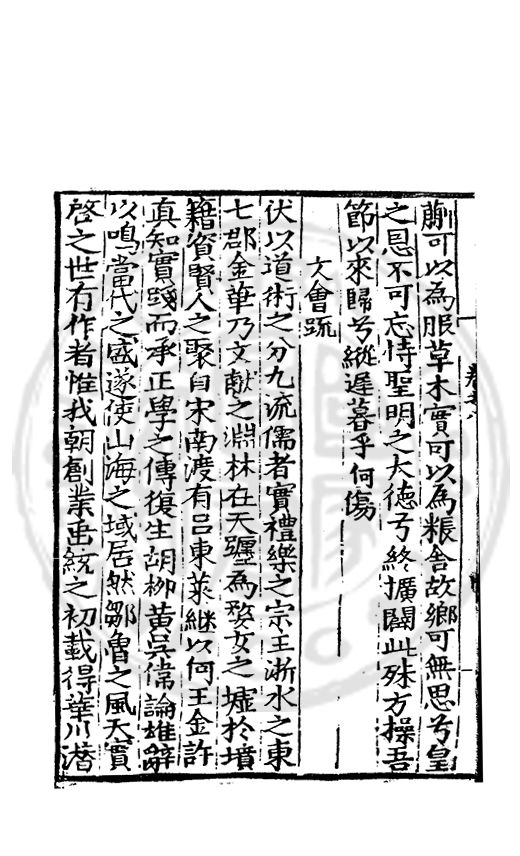 蒯可以為服草木實可以為粻舍故鄉可無思兮皇
之恩不可忘恃聖明之大德兮終擴闢此殊方操吾
節以來歸兮縱遲暮乎何傷
文會䟽
伏以道術之分九流儒者實禮樂之宗王浙水之東
七郡金華乃文献之淵林在天躔為婺女之墟於墳
籍資賢人之聚自宋南渡有吕東萊継以何王金許
真知實踐而承正學之傳復生胡柳黄吳偉論雄辭
以鳴當代之盛遂使山海之域居然鄒魯之風天實
啓之世有作者惟我朝創業垂統之初載得華川潛